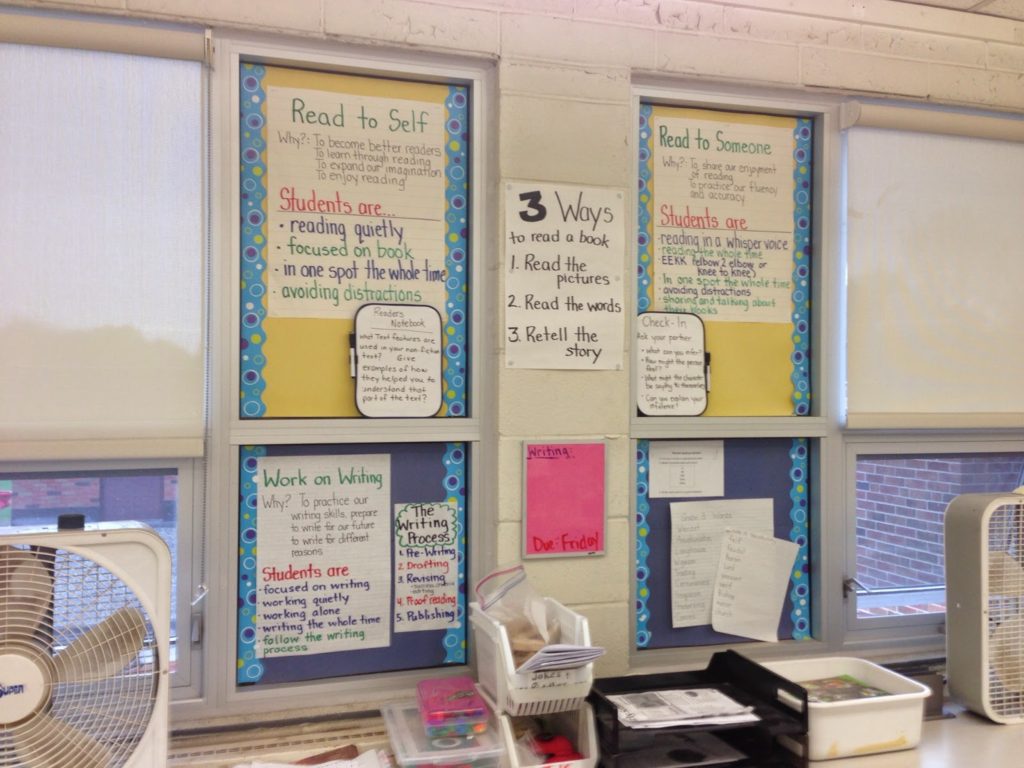 Read to Self
Why?: To become better readers
To learn through reading
To expand our imagination
To enjoy reading
Students are...
• reading quietly
• focused on book
• in one spot the whole time
• avoiding distractions
Readers
Notebook
What Text features are
used in your non-fiction
text? Give
examples of how
they helped you to
understand that
part of the text?
3 Ways
to read a book
1. Read the
pictures
2. Read the words
3. Retell the
story
Read to Someone
Why?: To share our enjoyment
of reading
To practice our fluency
and accuracy
Students are
• reading in a whisper voice
• reading the whole time
• EEKK (elbow 2 elbow or
knee to knee)
• In one spot the whole time
• avoiding distractions
• sharing and talking about
their books
Check-In
Ask your partner
• What can you infer?
• How might the person
feel?
• What might the character
be saying to themselves
• Can you explain your
inference?
Work on Writing
Why? To practice our
writing skills, prepare
to write for our future
to write for different
reasons
Students are
• focused on writing
• working quietly
• working alone
• writing the whole time
• follow the writing
process
The
Writing
Process
1. Pre-Writing
2. Drafting
3. Revising
4. Proof reading
5. Publishing
Writing:
Due: Friday!
Grade 3 Words
Jokes &
Super